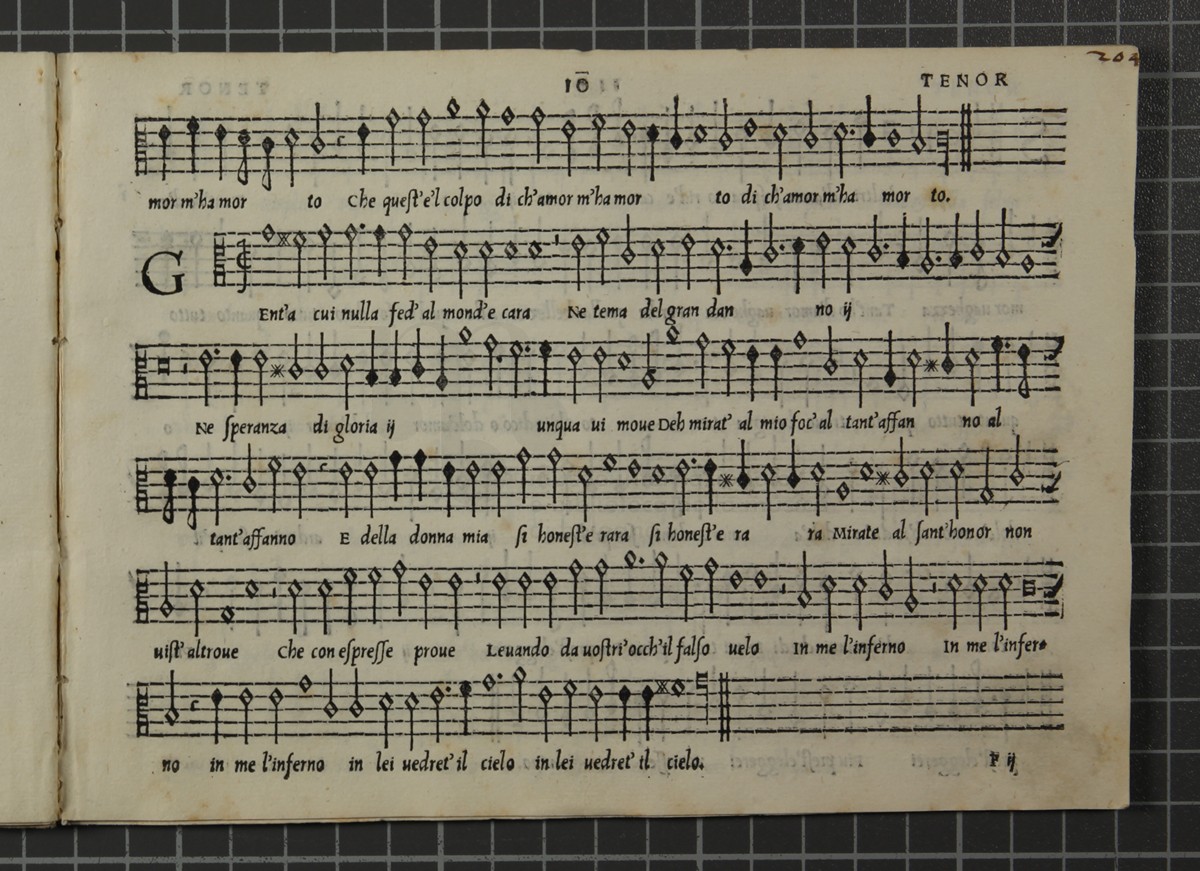 204
10 TENOR
mor m'ha mor to Che queſt'e'l colpo di ch'amor m'ha mor to di ch'amor m'ha mor to.
G
Ent'a cui nulla fed' al mond'e cara Ne tema del gran dan no ij
Ne ſperanza di gloria ij unqua ui moue Deh mirat' al mio foc' al tant'affan no al
tant'affanno E della donna mia ſi honeſt'e rara ſi honeſt'e ra ra Mirate al ſant'honor non
uiſt' altroue Che con eſpreſſe proue Leuando da uoſtri'occh'il falſo uelo In me l'inferno In me l'infer
no in me l'inferno in lei uedret' il cielo in lei uedret' il cielo.
F ij